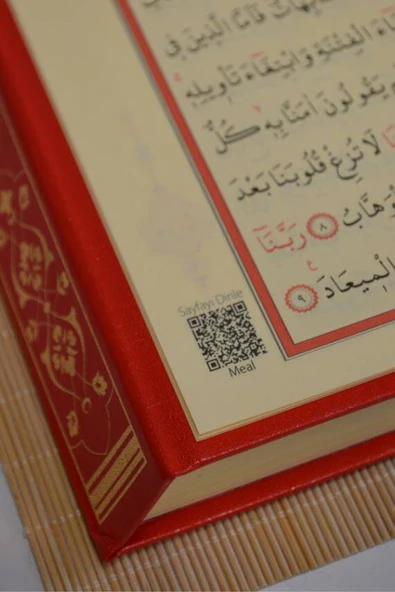 فَاَمَّا الَّذ۪ينَ ف۪ي
الْفِتْنَةِ وَابْتِغَٓاءَ تَأْو۪يلِه۪
يَقُولُونَ اٰمَنَّا بِه۪ كُلٌّ
لَا تُزِغْ قُلُوبَنَا بَعْدَ
٨ رَبَّنَٓا
الْم۪يعَادَ ٩
Sayfayı Dinle
Meal